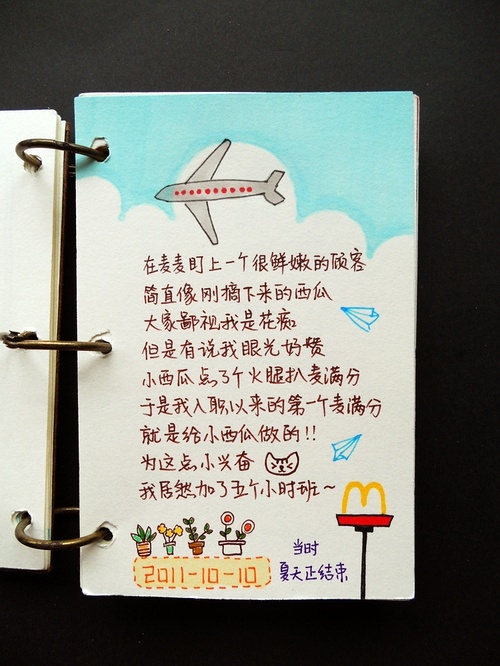 在麦麦盯上一个很鲜嫩的顾客
简直像刚摘下来的西瓜
大家鄙视我是花痴
但是有说我眼光好赞
小西瓜点了个火腿扒麦满分
于是我入职以来的第一个麦满分
就是给小西瓜做的!!
为这点小兴奋
我居然加了五个小时班~
当时
夏天正结束
2011-10-10